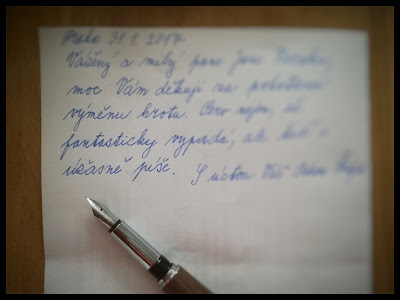 Praha 31.1.2007
Vážený a milý pane Jane
moc Vám děkuji za
výměnu hrotu. Pero nejen, že
fantasticky vypadá, ale také i
úžasně píše. S úctou Váš Adam